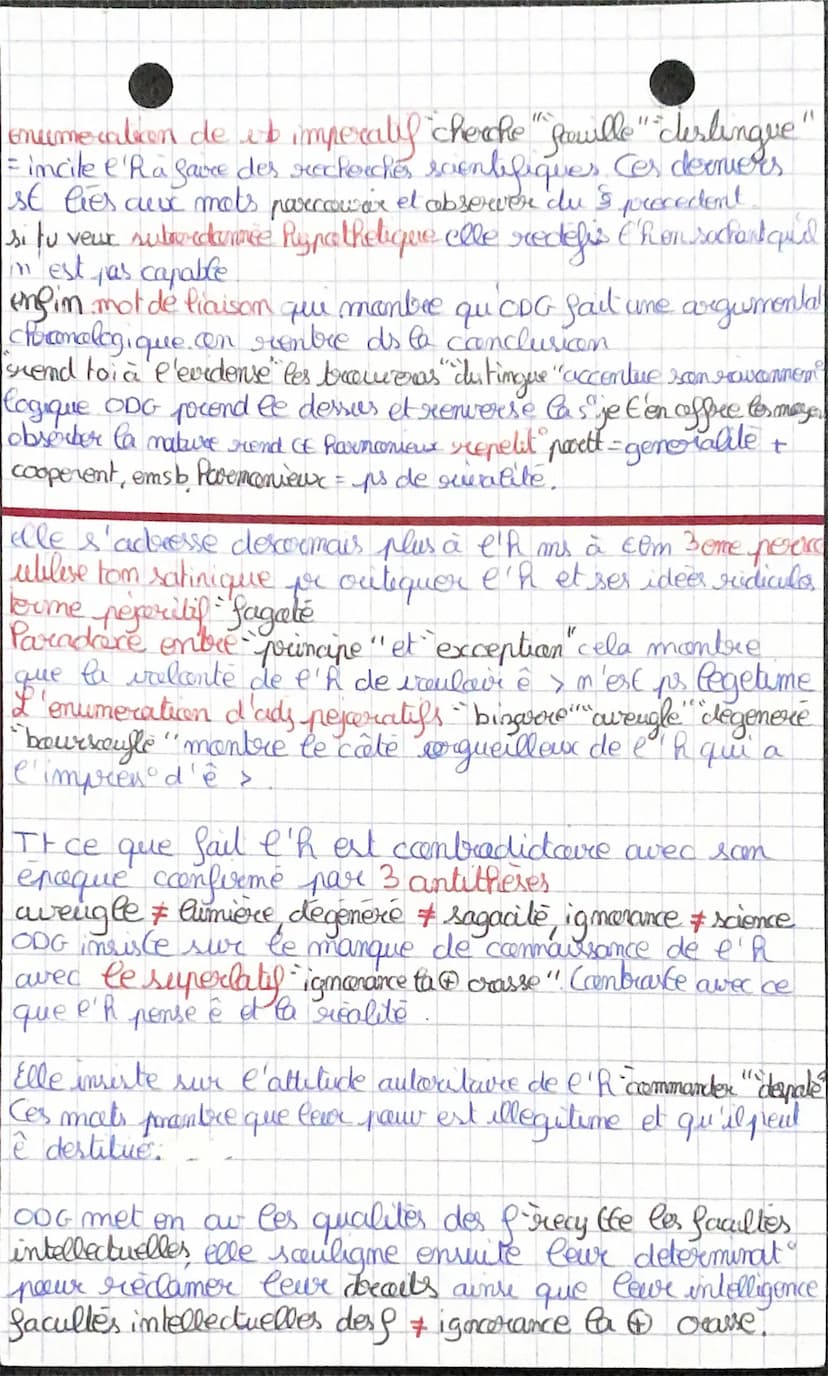 enumeration de vb imperatif "cherche" "fouille" "distingue"
= incite l'h à faire des recherches scientifiques. Ces derniers
st liés aux mots parcourir et observer du § precedent.
si tu veux subordonnée hypothetique elle redefis l'h en sachant qu'il
n'est pas capable
enfin mot de liaison qui montre qu'ODG fait une argumentat
chronologique. on rentre ds la conclusion
"rend toi à l'evidense" "les trouveras" "distingue" accentue son raisonnem
logique ODG prend le dessus et renverse la s° je t'en offre les moyen
observer la nature rend ct harmonieux repetit° partt = generalité +
cooperent, emsb, harmonieux = ps de rivalité.
elle s'adresse desormais plus à l'h ms à com 3eme perso
utilise ton satirique pr critiquer l'h et ses idées ridicules
terme péjoritif = fagoté
Paradoxe entre "principe" et "exception" cela montre
que la volonté de l'h de vouloir ê > n'est ps legetime
L'enumeration d'adj pejoratifs "bizarre" "aveugle" "degeneré
"boursouflé" montre le côté orgueilleux de l'h qui a
l'impress° d'ê >.
Tt ce que fait l'h est contradictoire avec son
époque confirmé par 3 antithèses
aveugle ≠ lumière, dégénéré ≠ sagacité, ignorance ≠ science
ODG insiste sur le manque de connaissance de l'h
avec le superlatif "ignorance la ⊕ crasse". Contraste avec ce
que l'h pense ê et la réalité.
Elle insiste sur l'attitude autoritaire de l'h "commander" "despote"
Ces mots montre que leur pouv est illegitime et qu'il peut
ê destitué.
ODG met en av les qualités des f "reçu tte les facultés
intellectuelles, elle souligne ensuite leur determinat°
pour réclamer leur droits ainsi que leur intelligence
facultés intellectuelles des f ≠ ignorance la ⊕ crasse.